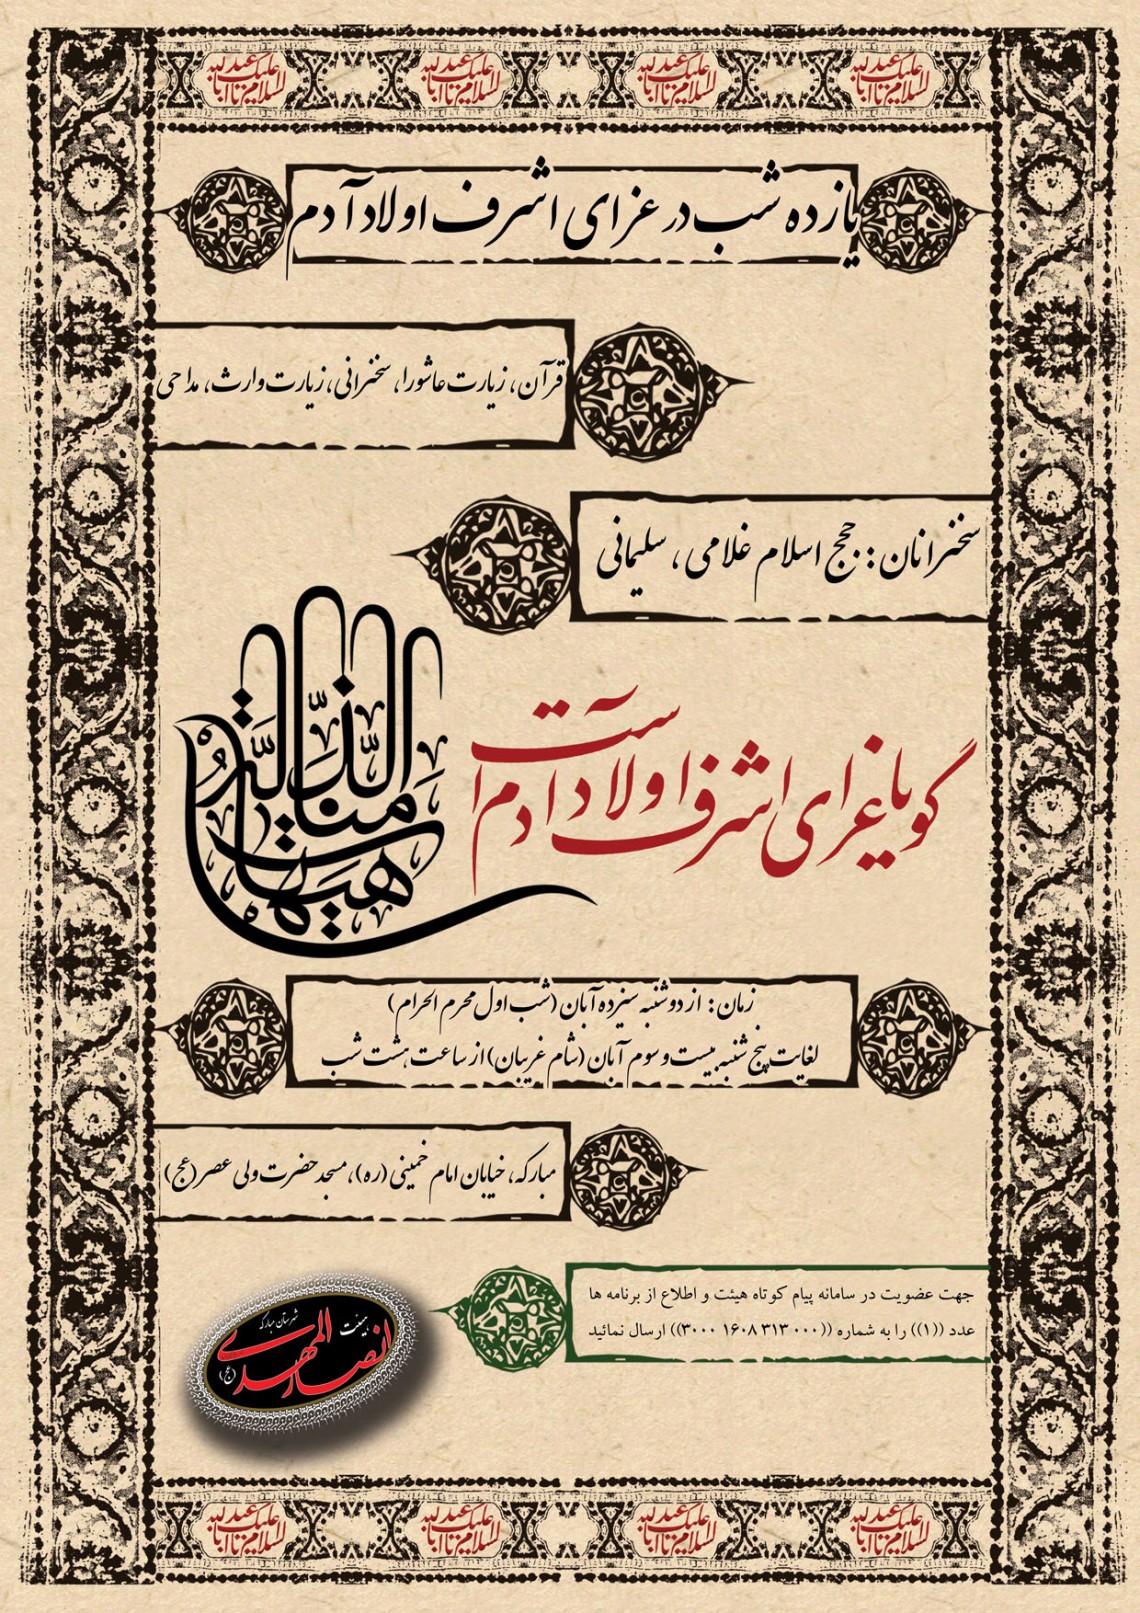 السلام علیک یا اباعبدالله السلام علیک یا اباعبدالله السلام علیک یا اباعبدالله السلام علیک یا اباعبدالله
یازده شب در عزای اشرف اولاد آدم
قرآن، زیارت عاشورا، سخنرانی، زیارت وارث، مداحی
سخنرانان: حجج اسلام غلامی، سلیمانی
گویا عزای اشرف اولاد آدم است
هیهات منا الذلة
زمان: از دوشنبه سیزده آبان (شب اول محرم الحرام)
لغایت پنج شنبه بیست و سوم آبان (شام غریبان) از ساعت هشت شب
مبارکه، خیابان امام خمینی (ره)، مسجد حضرت ولی عصر (عج)
جهت عضویت در سامانه پیام کوتاه هیئت و اطلاع از برنامه ها
عدد ((۱)) را به شماره ((۳۰۰۰ ۱۶۰۸ ۳۱۳ ۰۰۰)) ارسال نمائید
هیئت انصار المهدی (عج) شهرستان مبارکه
السلام علیک یا اباعبدالله السلام علیک یا اباعبدالله السلام علیک یا اباعبدالله السلام علیک یا اباعبدالله